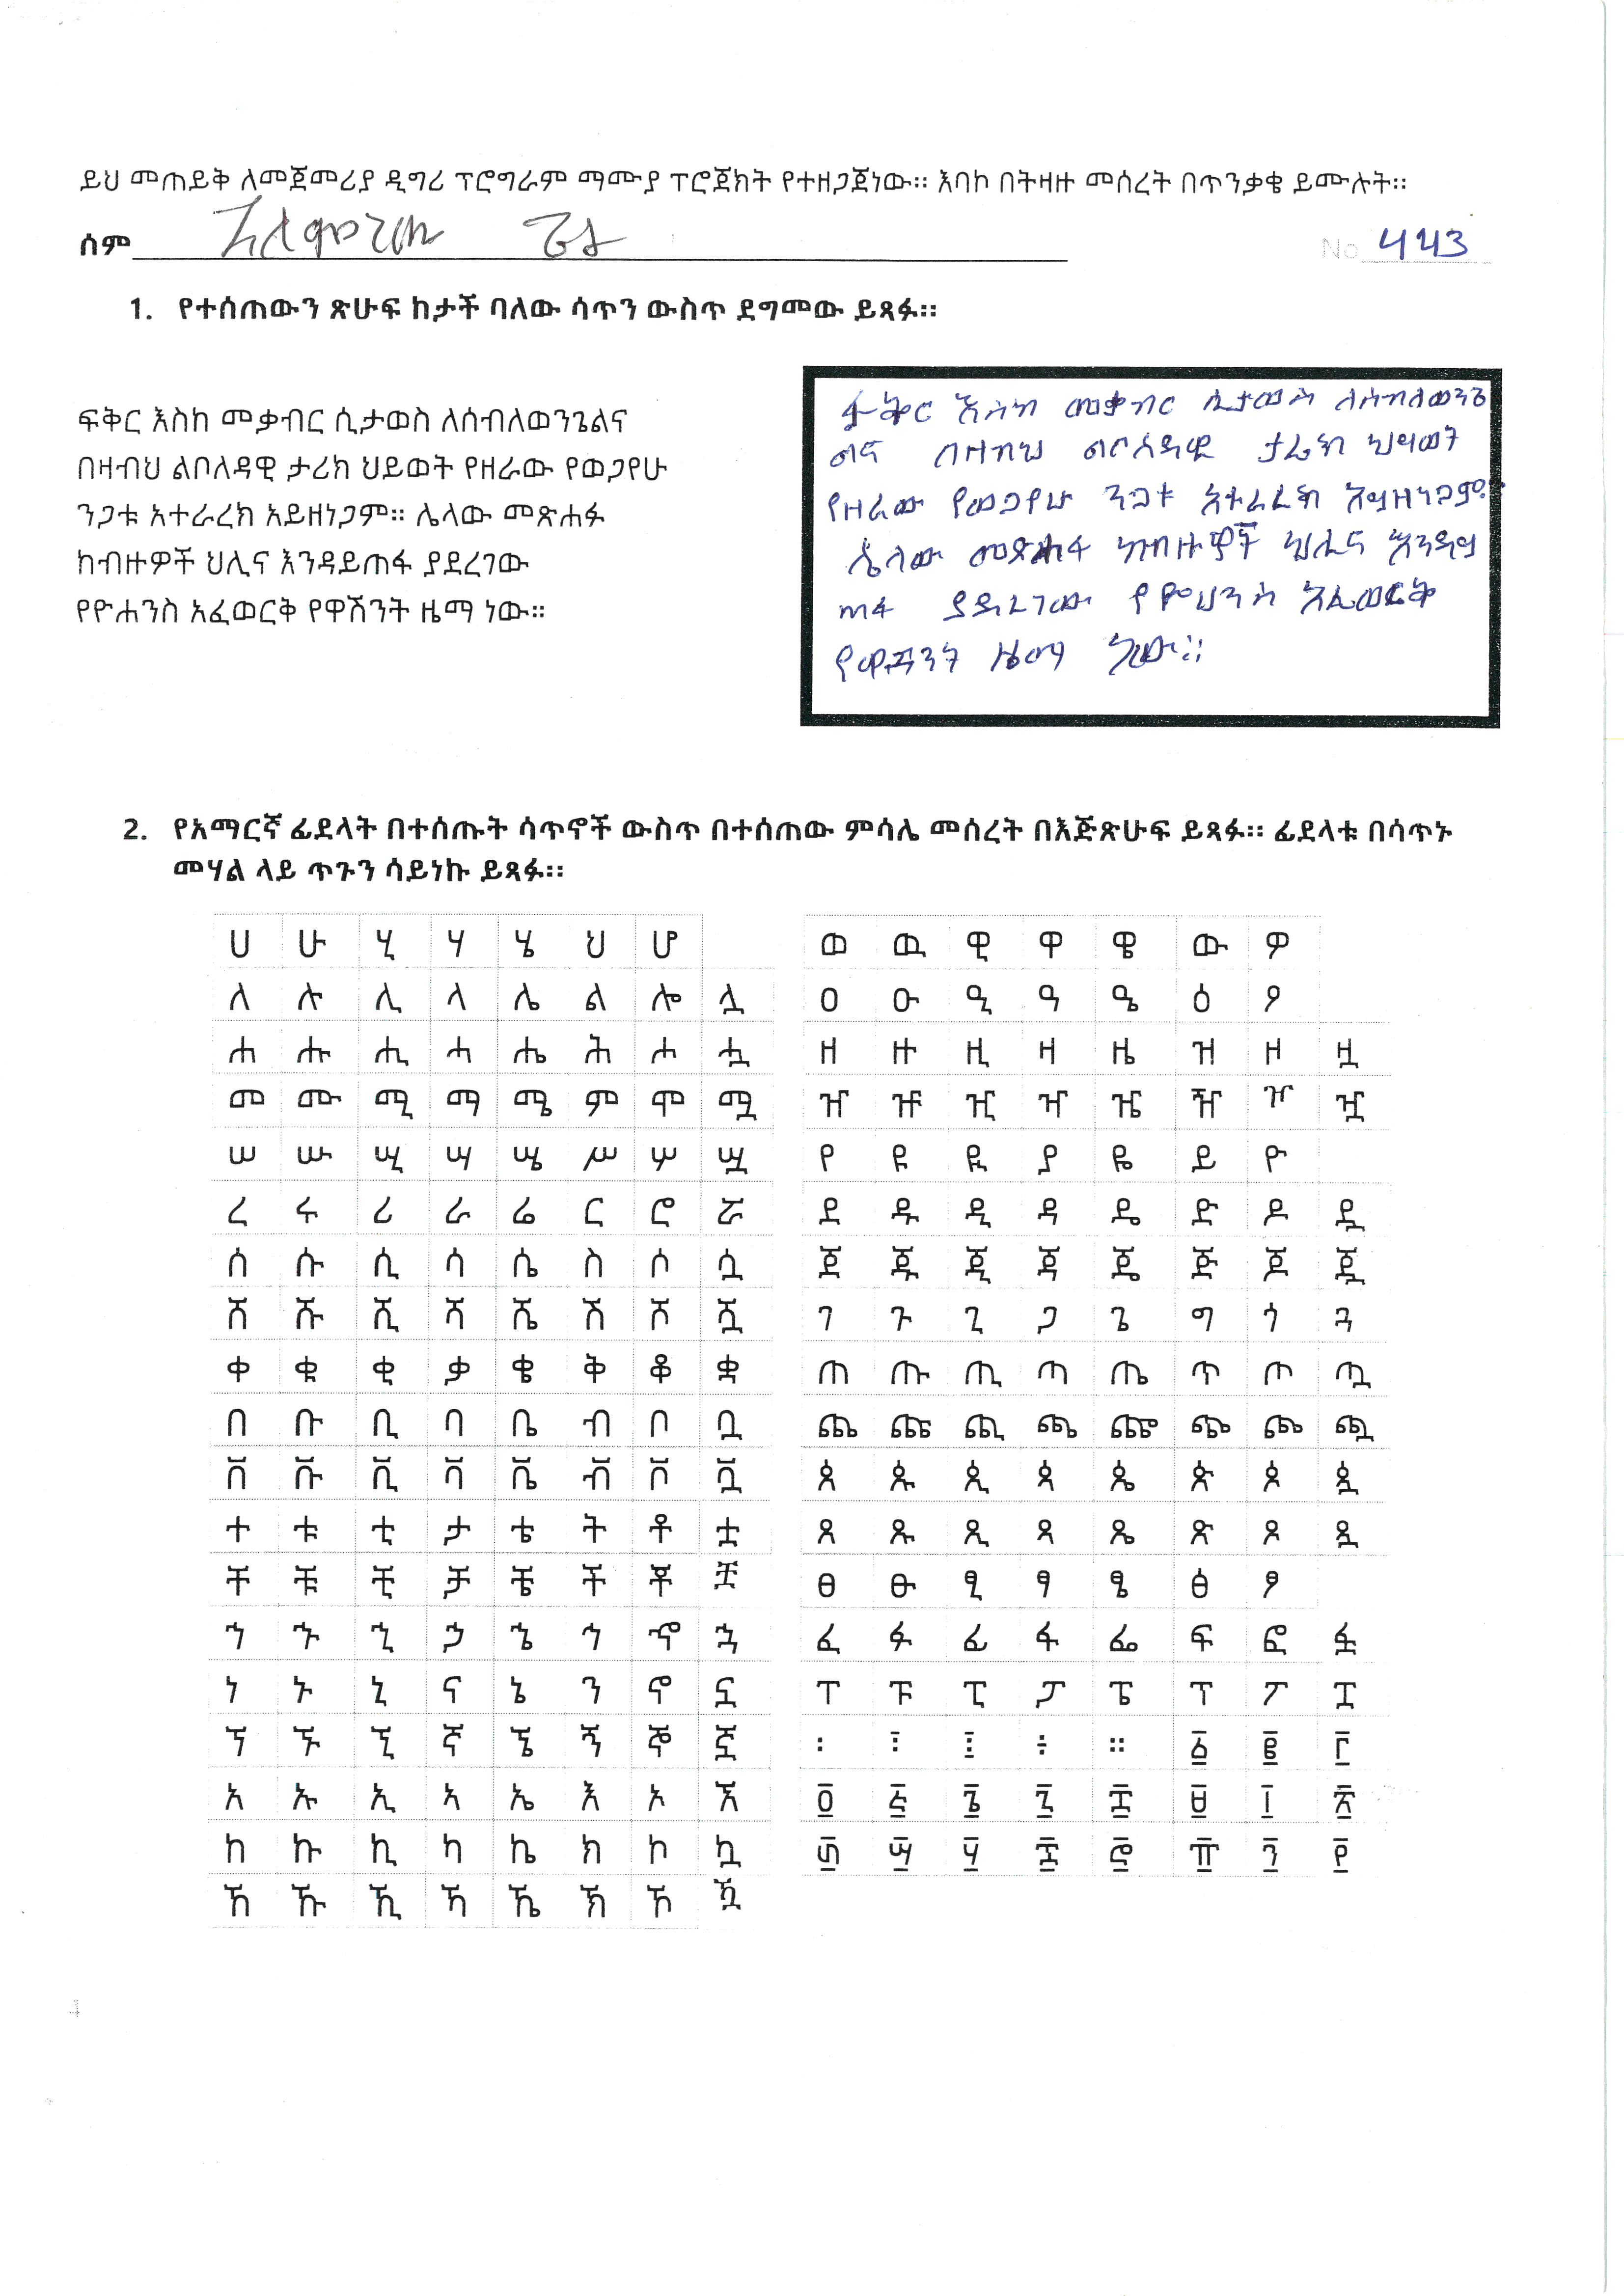 ይህ መጠይቅ ለመጀመሪያ ዲግሪ ፕሮግራም ማሙያ ፕሮጀክት የተዘጋጀነው። እባኮ በትዛዙ መሰረት በጥንቃቄ ይሙሉት።
ሰም
No 443
1. የተሰጠውን ጽሁፍ ከታች ባለው ሳጥን ውስጥ ደግመው ይጻፉ።
ፍቅር እስከ መቃብር ሲታወስ ለሰብለወንጌልና
በዛብህ ልቦለዳዊ ታሪክ ህይወት የዘራው የወጋየሁ
ንጋቱ አተራረክ አይዘነጋም። ሌላው መጽሐፉ
ከብዙዎች ህሊና እንዳይጠፋ ያደረገው
የዮሐንስ አፈወርቅ የዋሽንት ዜማ ነው።
ፋቅር እስከ መቃብር ሲታወስ ለሰብለወንጌ
ልና በዛብህ ልቦለዳዊ ታሪክ ህይወት
የዘራው የወጋየሁ ንጋቱ አተራረክ አይዘነጋም።
ሌላው መጽሐፋ ከብዙዎች ህሊና እንዳይ
ጠፋ ያደረገው የዮሀንስ አፈወርቅ
የዋሽንት ዜማ ነው።
2. የአማርኛ ፊደላት በተሰጡት ሳጥኖች ውስጥ በተሰጠው ምሳሌ መሰረት በእጅጽሁፍ ይጻፉ። ፊደላቱ በሳጥኑ
መሃል ላይ ጥጉን ሳይነኩ ይጻፉ።
ሀ ሁ ሂ ሃ ሄ ህ ሆ
ለ ሉ ሊ ላ ሌ ል ሎ ሏ
ሐ ሑ ሒ ሓ ሔ ሕ ሖ ሗ
መ ሙ ሚ ማ ሜ ም ሞ ሟ
ሠ ሡ ሢ ሣ ሤ ሥ ሦ ሧ
ረ ሩ ሪ ራ ሬ ር ሮ ሯ
ሰ ሱ ሲ ሳ ሴ ስ ሶ ሷ
ሸ ሹ ሺ ሻ ሼ ሽ ሾ ሿ
ቀ ቁ ቂ ቃ ቄ ቅ ቆ ቋ
በ ቡ ቢ ባ ቤ ብ ቦ ቧ
ቨ ቩ ቪ ቫ ቬ ቭ ቮ ቯ
ተ ቱ ቲ ታ ቴ ት ቶ ቷ
ቸ ቹ ቺ ቻ ቼ ች ቾ ቿ
ኀ ኁ ኂ ኃ ኄ ኅ ኆ ኋ
ነ ኑ ኒ ና ኔ ን ኖ ኗ
ኘ ኙ ኚ ኛ ኜ ኝ ኞ ኟ
አ ኡ ኢ ኣ ኤ እ ኦ ኧ
ከ ኩ ኪ ካ ኬ ክ ኮ ኳ
ኸ ኹ ኺ ኻ ኼ ኽ ኾ ዃ
ወ ዉ ዊ ዋ ዌ ው ዎ
ዐ ዑ ዒ ዓ ዔ ዕ ዖ
ዘ ዙ ዚ ዛ ዜ ዝ ዞ ዟ
ዠ ዡ ዢ ዣ ዤ ዥ ዦ ዧ
የ ዩ ዪ ያ ዬ ይ ዮ
ደ ዱ ዲ ዳ ዴ ድ ዶ ዷ
ጀ ጁ ጂ ጃ ጄ ጅ ጆ ጇ
ገ ጉ ጊ ጋ ጌ ግ ጎ ጓ
ጠ ጡ ጢ ጣ ጤ ጥ ጦ ጧ
ጨ ጩ ጪ ጫ ጬ ጭ ጮ ጯ
ጰ ጱ ጲ ጳ ጴ ጵ ጶ ጷ
ጸ ጹ ጺ ጻ ጼ ጽ ጾ ጿ
ፀ ፁ ፂ ፃ ፄ ፅ ፆ
ፈ ፉ ፊ ፋ ፌ ፍ ፎ ፏ
ፐ ፑ ፒ ፓ ፔ ፕ ፖ ፗ
፡ ፤ ፤ ፥ ። ፩ ፪ ፫
፬ ፭ ፮ ፯ ፰ ፱ ፲ ፳
፴ ፵ ፶ ፷ ፸ ፹ ፺ ፻